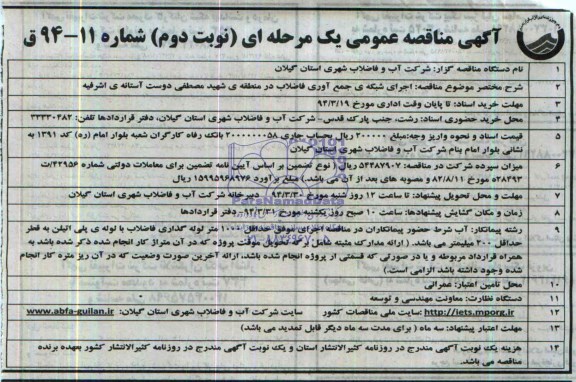 آگهی مناقصه عمومی یک مرحله ای (نوبت دوم) شماره ۱۱-۹۴ ق
۱ نام دستگاه مناقصه گزار: شرکت آب و فاضلاب شهری استان گیلان
۲ شرح مختصر موضوع مناقصه: اجرای شبکه ی جمع آوری فاضلاب در منطقه ی شهید مصطفی دوست آستانه ی اشرفیه
۳ مهلت خرید اسناد: تا پایان وقت اداری مورخ ۹۴/۳/۱۹
۴ محل خرید حضوری اسناد: رشت، جنب پارک قدس- شرکت آب و فاضلاب شهری استان گیلان، دفتر قراردادها تلفن: ۳۳۳۳۰۴۸۲
۵ قیمت اسناد و نحوه واریز وجه: مبلغ ۲۰۰۰۰۰ ریال بحساب جاری ۲۰۰۰۰۰۰۰۵۸ بانک رفاه کارگران شعبه بلوار امام (ره) کد ۱۳۹۱ به
نشانی بلوار امام بنام شرکت آب و فاضلاب شهری استان گیلان
۶ میزان سپرده شرکت در مناقصه: ۵۴۴۸۷۹۰۷ ریال( نوع تضمین بر اساس آیین نامه تضمین برای معاملات دولتی شماره ۴۲۹۵۶/ت
۲۸۴۹۳ه مورخ ۸۲/۸/۱۱ و مصوبه های بعد از آن می باشد.) مبلغ برآورد ۱۵۹۹۵۹۶۸۹۷۶ ریال
۷ مهلت و محل تحویل پیشنهاد: تا ساعت ۱۲ روز شنبه مورخ ۹۴/۳/۳۰ دبیرخانه شرکت آب و فاضلاب شهری استان گیلان
۸ زمان و مکان گشایش پیشنهادها: ساعت ۱۰ صبح روز یکشنبه مورخ ۹۴/۳/۳۱، دفتر قراردادها
۹ رشته پیمانکار: آب شرط حضور پیمانکاران در مناقصه اجرای موفق حداقل ۱۰۰۰ متر لوله گذاری فاضلاب با لوله ی پلی اتیلن به قطر
حداقل ۲۰۰ میلیمتر می باشد. ( ارائه مدارک مثبته شامل تحویل موقت پروژه که در آن متراژ کار انجام شده ذکر شده باشد به
همراه قرارداد مربوطه و یا در صورتی که قسمتی از پروژه انجام شده باشد، ارائه آخرین صورت وضعیت که در آن ریز متره کار انجام
شده وجود داشته باشد الزامی است.)
۱۰ محل تامین اعتبار: عمرانی
۱۱ دستگاه نظارت: معاونت مهندسی و توسعه
۱۲ http://iets.mporg.ir :سایت ملی مناقصات کشور سایت شرکت آب و فاضلاب شهری استان گیلان: www.abfa-guilan.ir
۱۳ مهلت اعتبار پیشنهاد: سه ماه ( برای مدت سه ماه دیگر قابل تمدید می باشد)
۱۴ هزینه یک نوبت آگهی مندرج در روزنامه کثیرالانتشار استان و یک نوبت آگهی مندرج در روزنامه کثیرالانتشار کشور بعهده برنده
مناقصه می باشد.